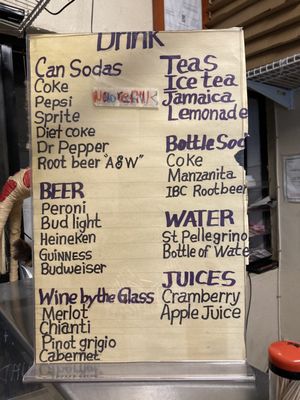 DRINK
Can Sodas
Coke
Pepsi
Sprite
Diet coke
Dr Pepper
Root beer "A&W"
BEER
Peroni
Bud light
Heineken
GUINNESS
Budweiser
Wine by the Glass
Merlot
Chianti
Pinot grigio
Cabernet
TEAS
Ice tea
Jamaica
Lemonade
Bottle Sod
Coke
Manzanita
IBC Rootbeer
WATER
St Pellegrino
Bottle of Wate
JUICES
Cramberry
Apple Juice